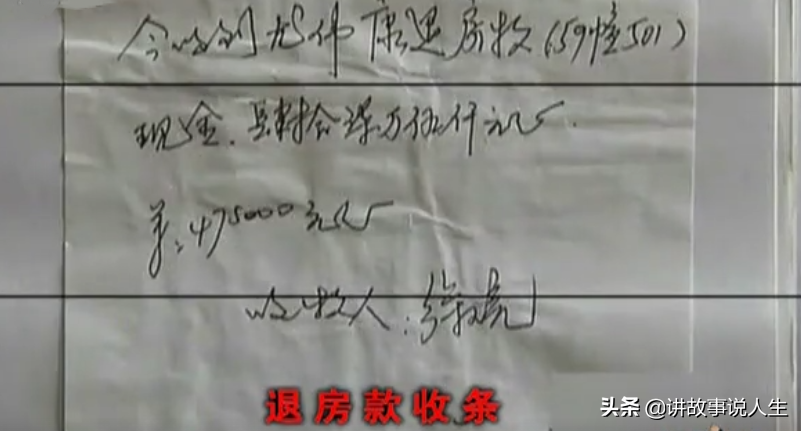 今收到尤伟康退房款(59幢501)
现金.肆拾柒万伍仟元正.
￥:475000元正
收款人:徐亮
退房款收条
头条 @讲故事说人生